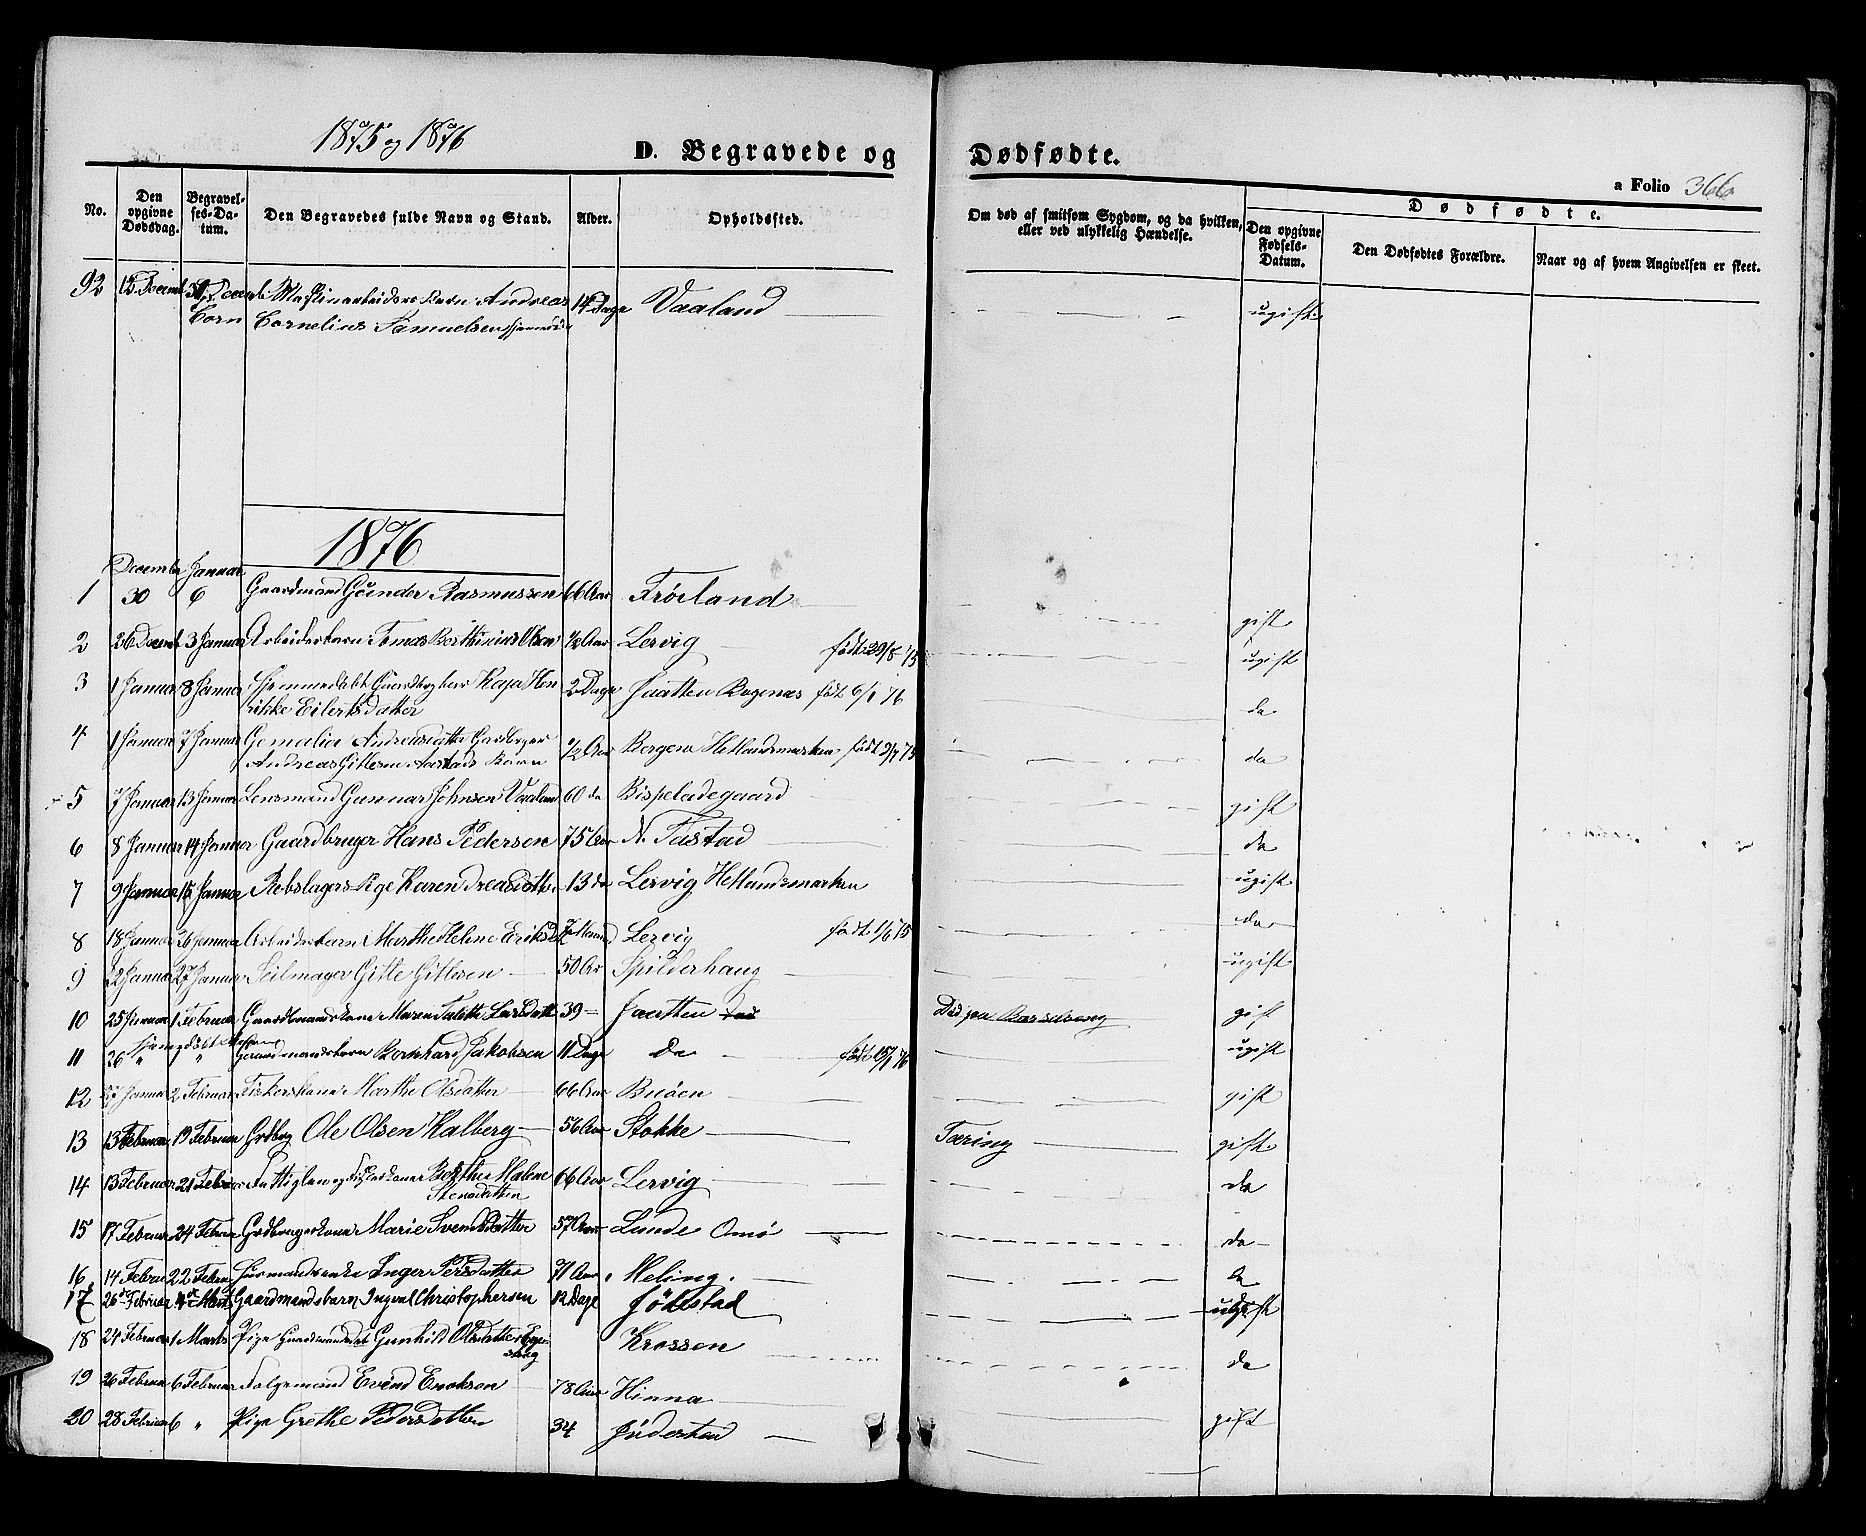 1875 og 1876
D. Begravede og Dødfødte.
a Folio 366
No.
Den opgivne Dødsdag.
Begravelses-Datum.
Den Begravedes fulde Navn og Stand.
Alder.
Opholdssted.
Om død af smitsom Sygdom, og da hvilken, eller ved ulykkelig Hændelse.
Dødfødte.
Den opgivne Fødsels-Datum.
Den Dødfødtes Forældre.
Naar og af hvem Angivelsen er skeet.
92 15 Decemb Decemb Andreas 14 Dage Vaaland ugift
Cornelius Samuelsen
1876
December Januar
1 30 6 Gaardmand Gunder Rasmussen 66 Aar Frøiland gift
2 26 Decemb 3 Januar Arbeiderbarn Tomas Berthinius Olsen ½ Aar Lervig født 29/8 75 ugift
3 1 Januar 8 Januar Hjemmedøbt Kaja Hen 2 Dage Jaatten født 6/1 76 da
rikke Eilertsdatter
4 1 Januar 7 Januar Andreasdatter ½ Aar Bergene Hetlandsmarken født 2/7 75 da
Andreas Gitlesen Aastads Barn
5 7 Januar 13 Januar Lensmand Gunnar Johnsen Vaaland 60 da Bispeladegaard gift
6 8 Januar 14 Januar Gaardbruger Hans Pedersen 75 Aar N. Tastad da
7 9 Januar 15 Januar Rebslagers Pige Karen 13 da Lervig Hetlandsmarken ugift
8 18 Januar 26 Januar Arbeiderbarn Marthe Helene Eriksd 7 Maaned Lervig født 1/6 75 da
9 22 Januar 27 Januar Seilmager Gitle Gitlesen 50 Ar Spilderhaug ugift
10 25 Januar 1 Februar Gaardbrmandskone Maren Larsdatt 39 Jaatten Død paa Barselseng gift
11 26 " " Gaardmandsbarn Bernhard Jakobsen 11 Dage da født 15/1 76 ugift
12 27 Januar 2 Februar Fiskerskone Marthe Olsdatter 66 Aar Buøen gift
13 13 Februar 19 Februar Grdbrug Ole Olsen Kalberg 56 Aar Stokke Tæring gift
14 13 Februar 21 Februar Fattiglem og Fiskerkone Berthe Malene 66 Aar Lervig da
Stensdatter
15 17 Februar 24 Februar Grdbrugerskone Marie Svendsdatter 57 Aar Lunde Omø da
16 14 Februar 22 Februar Husmandsenke Inger Persdatter 71 Aar Meling. da
17 26 Februar Gaardmandsbarn Ingval Christophersen 12 Dage Jødestad ugift
18 24 Februar 1 Marts Pige Gunhild Olsdatter Krossen da
19 26 Februar 6 Februar Folgemand Evind Enoksen 78 Aar Hinna gift
20 28 Februar 6 " Pige Grethe Pedersdatter 34